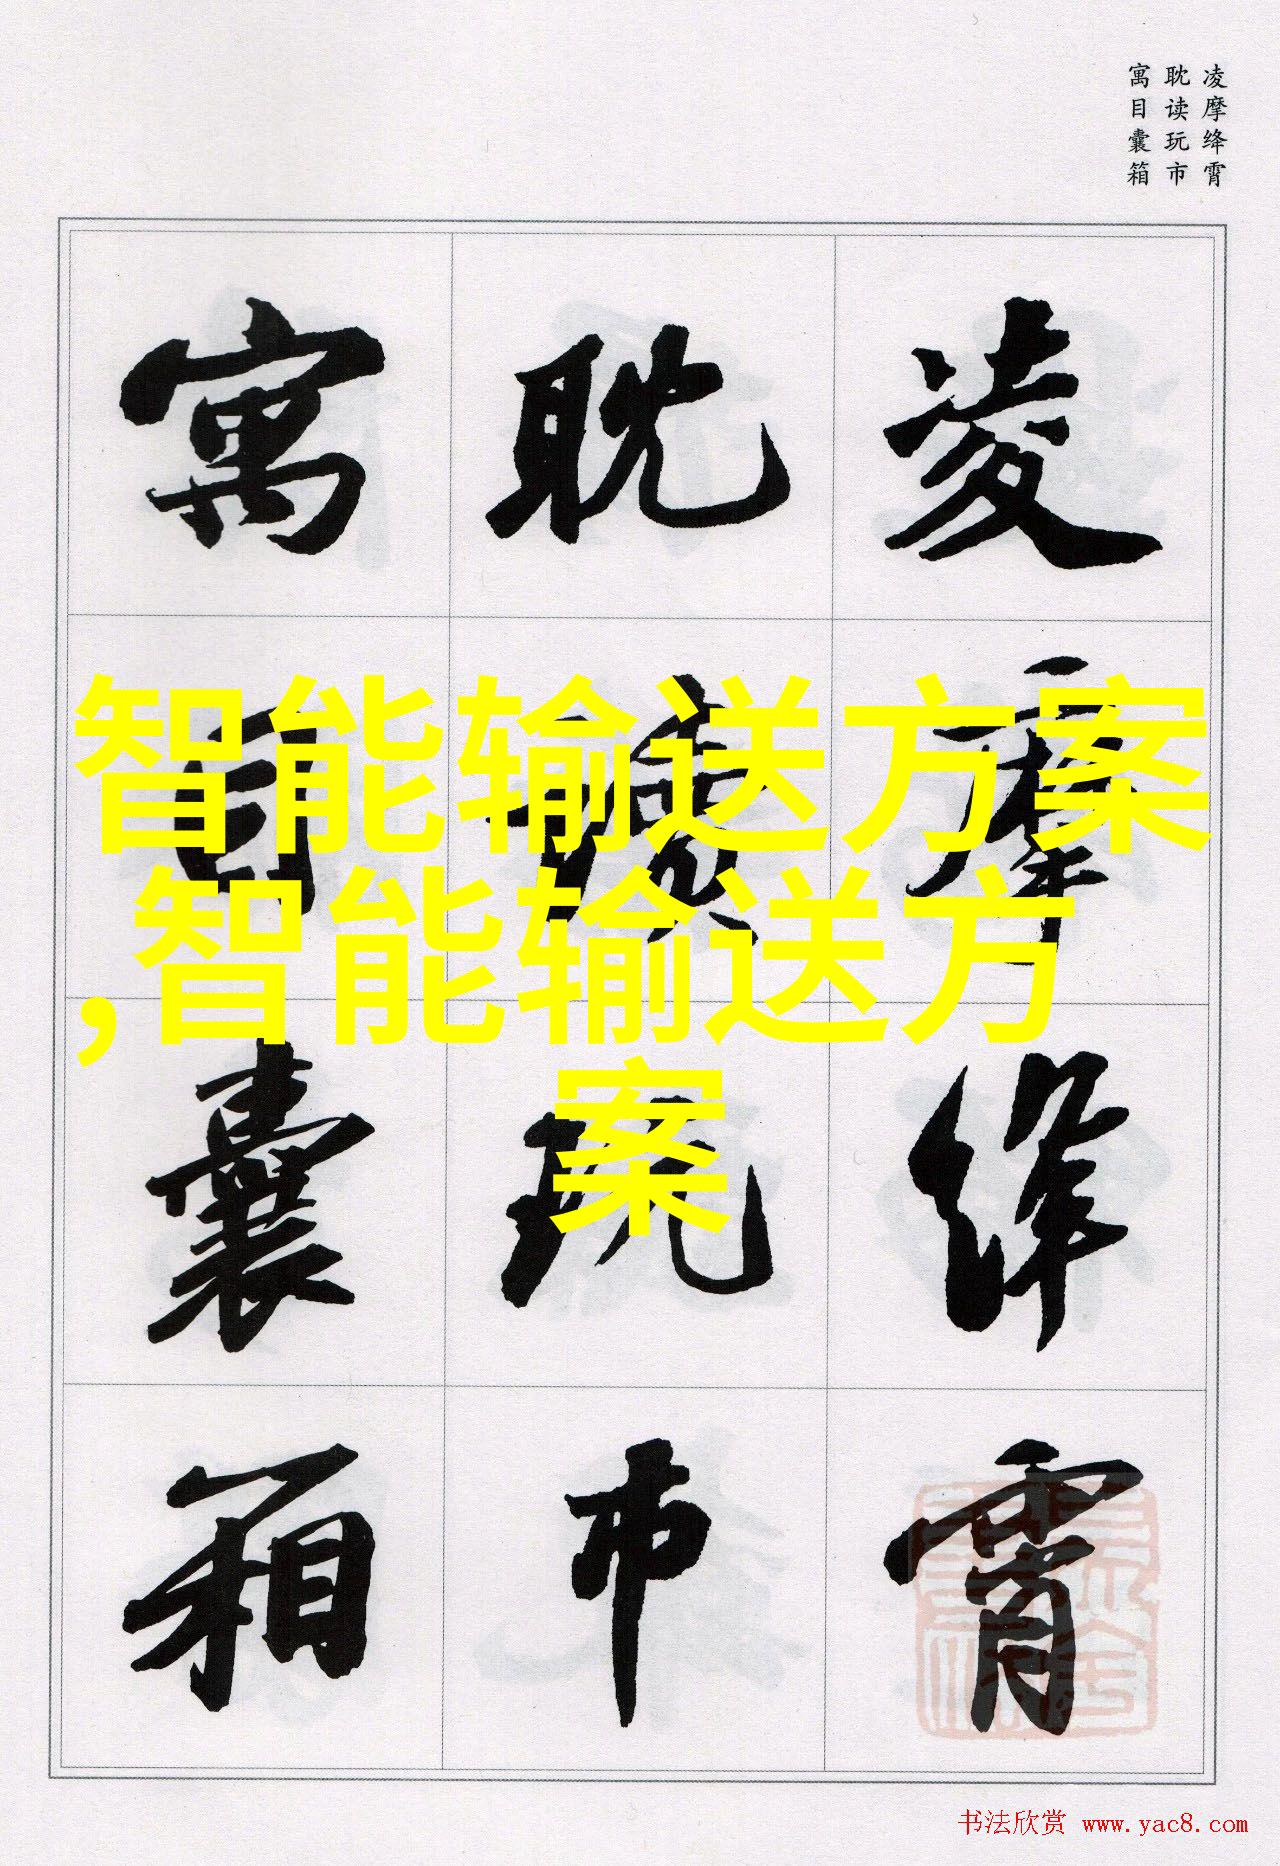 凌摩绛霄
耽读玩市
寓目囊箱
凌摩绛霄
耽读玩市
寓目囊箱
智能输送方案
,智能输送方
案
书法欣赏 www.yac8.com